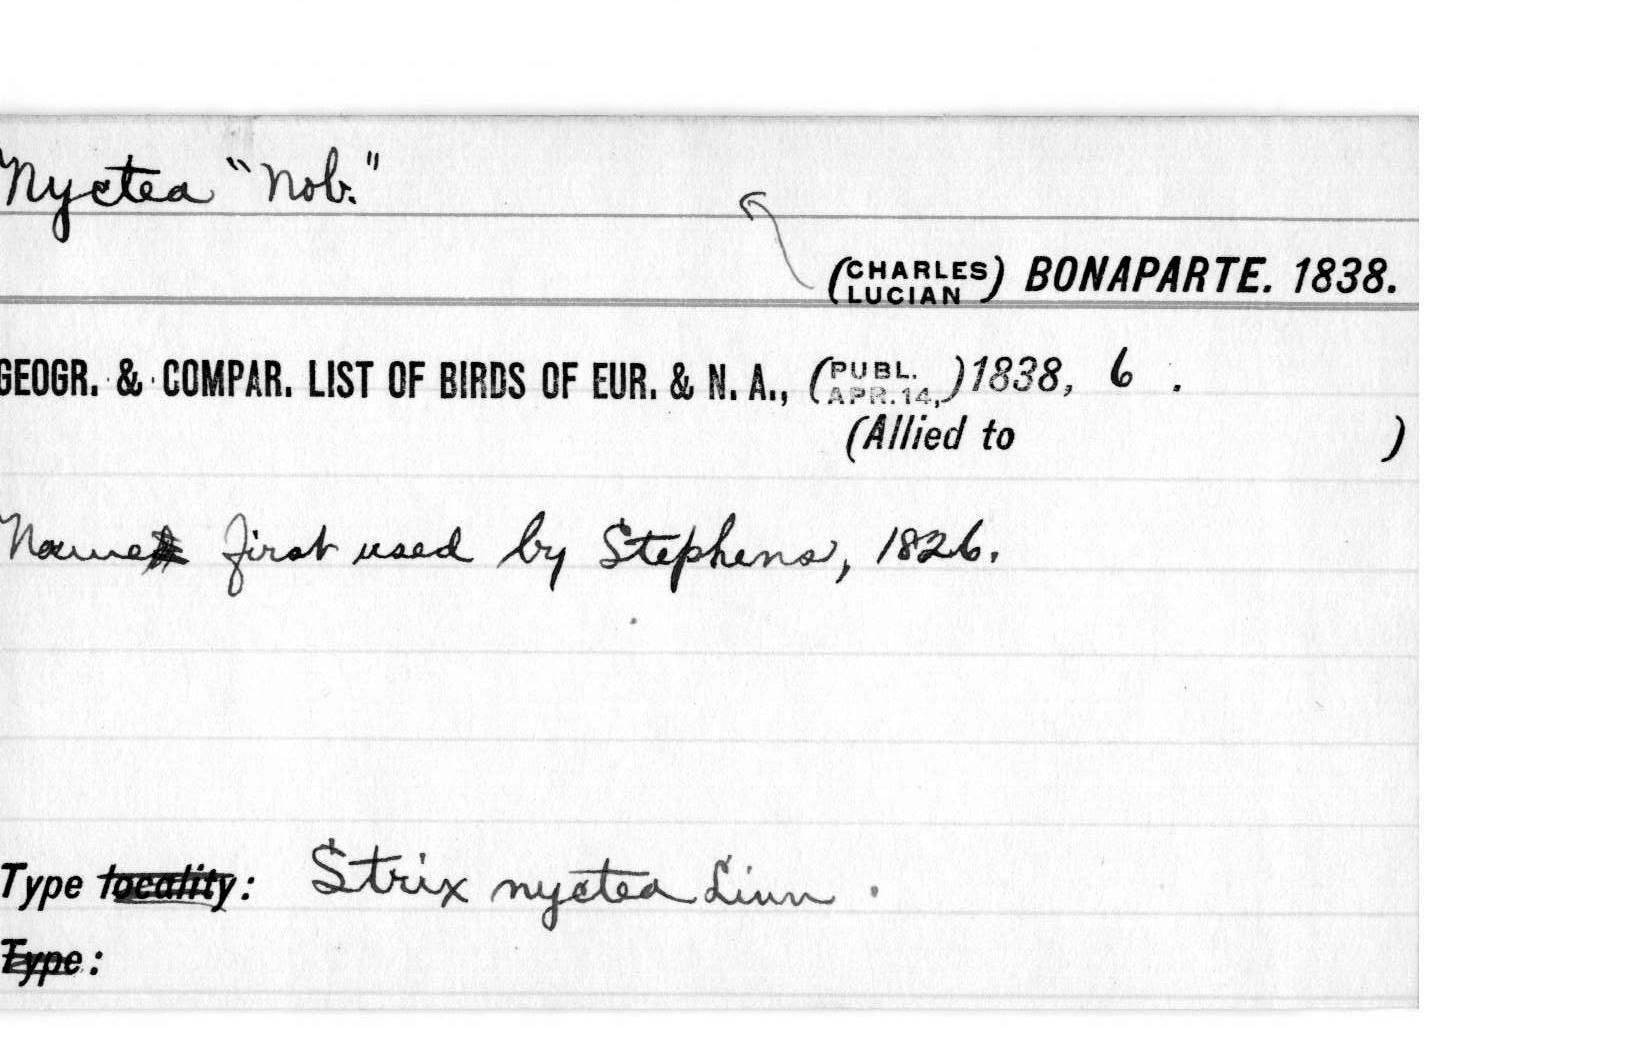 Nyctea "Nob."
(CHARLES LUCIAN) BONAPARTE. 1838.
GEOGR. & COMPAR. LIST OF BIRDS OF EUR. & N. A., (PUBL. APR. 14,) 1838, 6 .
(Allied to )
Name first used by Stephens, 1826.
Type locality: Strix nyctea Linn.
Type: